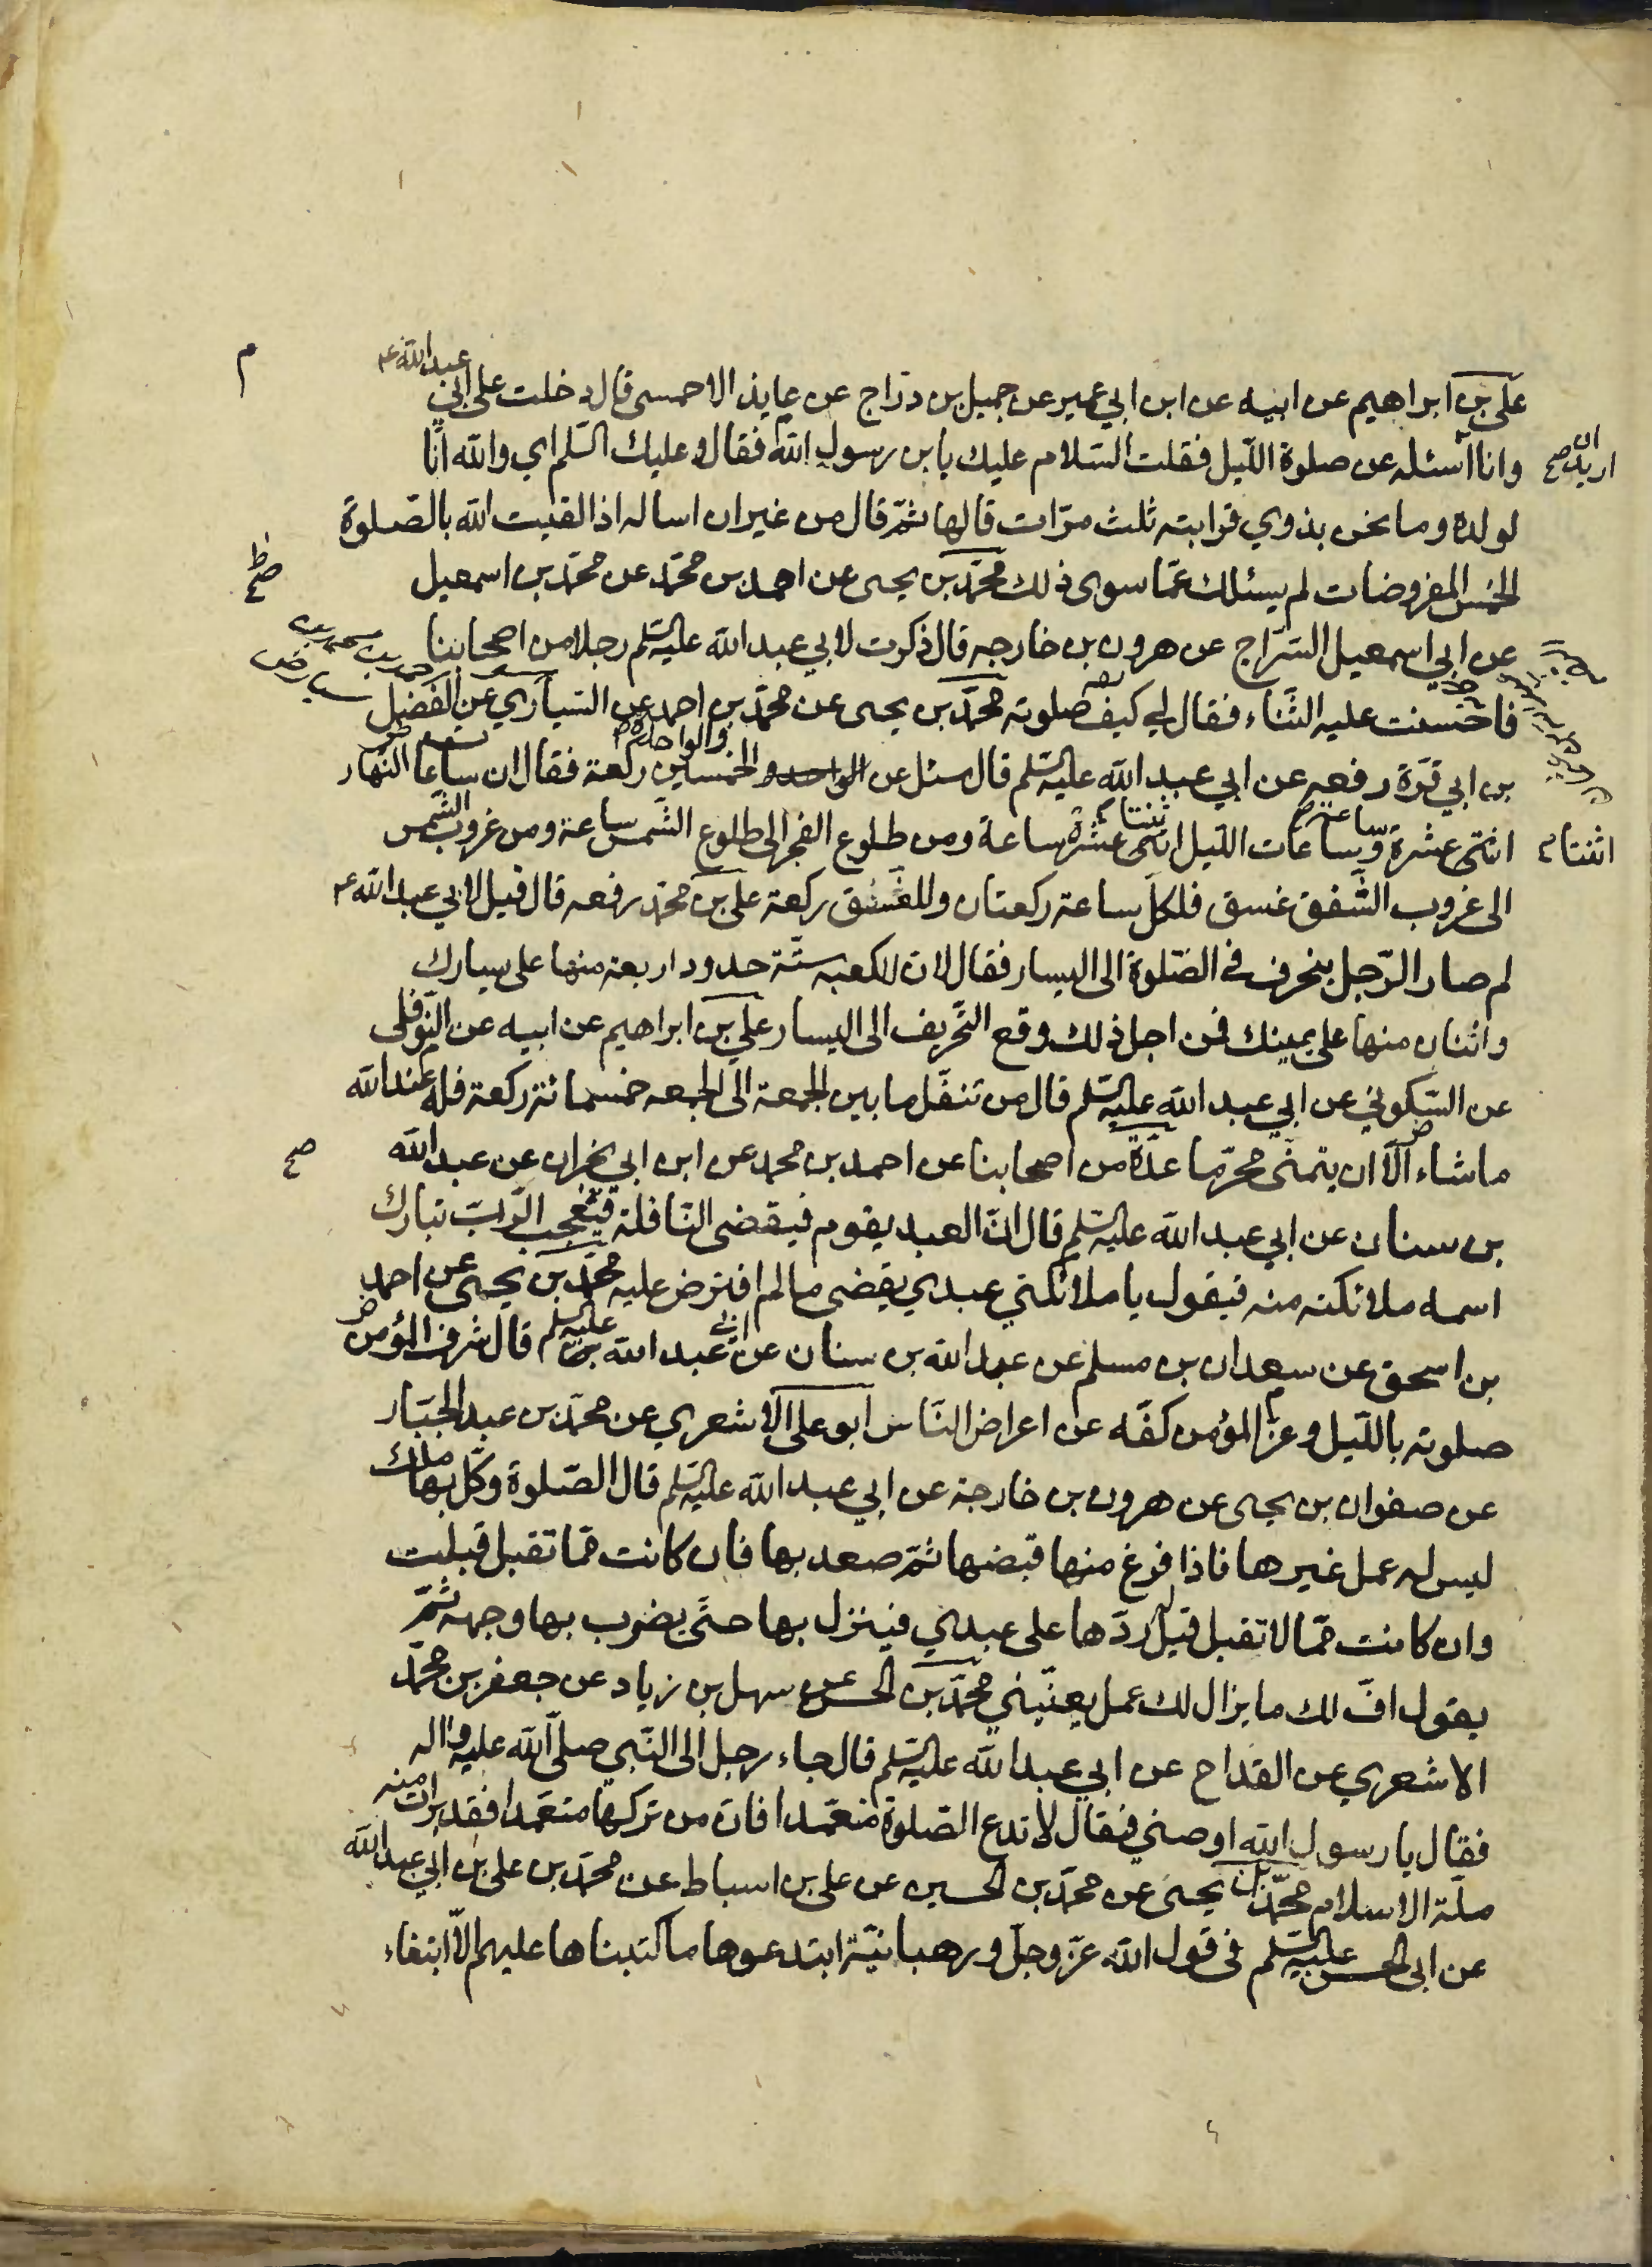 علي بن ابراهيم عن ابيه عن ابن ابي عمير عن جميل بن درّاج عن عايذ الاحمسي قال دخلت على ابي عبد الله ع
وانا اسئله عن صلوة اللّيل فقلت السّلام عليك يابن رسول الله فقال وعليك السّلم اي والله انّا
اريد ان صح
لولده وما نحن بذوي قرابته ثلث مرّات قالها ثمّ قال من غير ان اساله اذا لقيت الله بالصّلوة
الخمس المفروضات لم يسئلك عمّا سوى ذلك محمّد بن يحيى عن احمد بن محمّد عن محمّد بن اسمعيل
عن ابي اسمعيل السّرّاج عن هرون بن خارجه قال ذكرت لابي عبد الله عليه السّلم رجلا من اصحابنا
فاحسنت عليه الثّناء فقال لي كيف صلوته محمّد بن يحيى عن محمّد بن احمد عن السّياري عن الفضيل
بن ابي قرّة رفعه عن ابي عبد الله عليه السّلم قال سئل عن الواحد و الخمسين والواحدة ركعة فقال ان ساعات النّهار
اثنتى عشرة وساعات اللّيل اثنتى عشرة ساعة ومن طلوع الفجر الى طلوع الشّمس ساعة ومن غروب الشّمس
اثنتا م
الى غروب الشّفق غسق فلكلّ ساعة ركعتان وللغسق ركعة علي بن محمّد رفعه قال قيل لابي عبد الله ع
لم صار الرّجل ينحرف في الصّلوة الى اليسار فقال لان للكعبه ستّة حدود اربعة منها على يسارك
واثنان منها على يمينك فمن اجل ذلك وقع التّحريف الى اليسار علي بن ابراهيم عن ابيه عن النّوفلي
عن السّكوني عن ابي عبد الله عليه السّلم قال من تنفّل ما بين الجمعة الى الجمعه خمسمائة ركعة فله عند الله
ماشاء الّا ان يتمنّى محرّما عدّة من اصحابنا عن احمد بن محمد عن ابن ابي نجران عن عبد الله
بن سنان عن ابي عبد الله عليه السّلم قال انّ العبد يقوم فيقضي النّافلة فيعجب الرّبّ تبارك
اسمه ملائكته منه فيقول يا ملائكتي عبدي يقضي مالم افترض عليه محمّد بن يحيى عن احمد
بن اسحق عن سعدان بن مسلم عن عبد الله بن سنان عن ابي عبد الله عليه السلم قال شرف المؤمن
صلوته باللّيل وعزّ المؤمن كفّه عن اعراض النّاس ابو علي الاشعري عن محمّد بن عبد الجبّار
عن صفوان بن يحيى عن هرون بن خارجة عن ابي عبد الله عليه السّلم قال الصّلوة وكّل بها ملك
ليس له عمل غيرها فاذا فرغ منها قبضها ثمّ صعد بها فان كانت ممّا تقبل قبلت
وان كانت ممّا لا تقبل قيل له ردّها على عبدي فينزل بها حتّى يضرب بها وجهه ثمّ
يقول افّ لك ما يزال لك عمل يعنّيني محمّد بن الحسن عن سهل بن زياد عن جعفر بن محمّد
الاشعري عن القداح عن ابي عبد الله عليه السّلم قال جاء رجل الى النّبي صلّى الله عليه واله
فقال يا رسول الله اوصني فقال لا تدع الصّلوة متعمّدا فانّ من تركها متعمّدا فقد برات منه
ملّة الاسلام محمّد بن يحيى عن محمّد بن الحسين عن علي بن اسباط عن محمّد بن علي بن ابي عبد الله
عن ابي الحسن عليه السّلم في قول الله عزّ وجلّ ورهبانيّة ابتدعوها ما كتبناها عليهم الّا ابتغاء